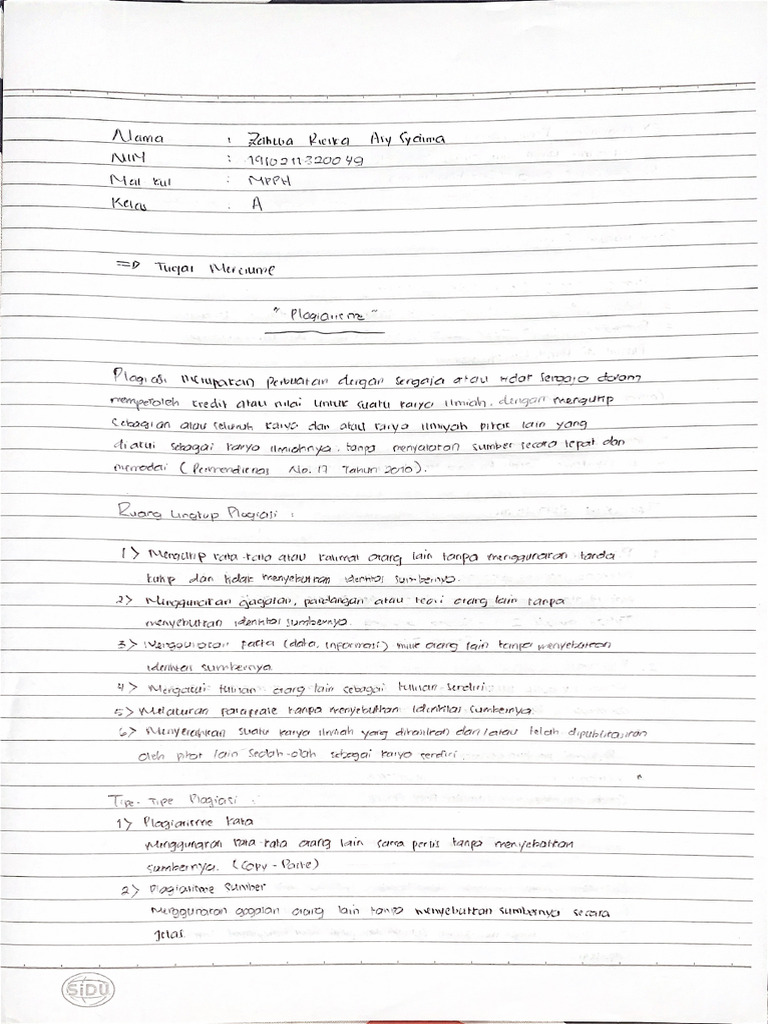 Nama : Zahwa Ricika Asy Syaima
NIM : 191021320049
Mat kul : MPPH
Kelas : A
=> Tugas Meresume
" Plagiarisme "
Plagiasi merupakan perbuatan dengan sengaja atau tidak sengaja dalam
memperoleh credit atau nilai untuk suatu karya ilmiah, dengan mengutip
sebagian atau seluruh karya dan atau karya ilmiyah pihak lain yang
diakui sebagai karya ilmiahnya, tanpa menyatakan sumber secara tepat dan
memadai (Permendiknas No. 17 Tahun 2010).
Ruang Lingkup Plagiasi :
1> Mengutip kata-kata atau kalimat orang lain tanpa menggunakan tanda
kutip dan tidak menyebutkan identitas sumbernya.
2> Menggunakan gagasan, pandangan atau teori orang lain tanpa
menyebutkan identitas sumbernya.
3> Menggunakan fakta (data, informasi) milik orang lain tanpa menyebutkan
identitas sumbernya
4> Mengakui tulisan orang lain sebagai tulisan sendiri
5> Melakukan parafrase tanpa menyebutkan identitas sumbernya
6> Menyerahkan suatu karya ilmiah yang dihasilkan dan/atau telah dipublikasikan
oleh pihak lain seolah-olah sebagai karya sendiri.
Tipe-Tipe Plagiasi :
1> Plagiarisme Kata
Menggunakan kata-kata orang lain sama persis tanpa menyebutkan
sumbernya. (Copy-Paste)
2> Plagiarisme Sumber
Menggunakan gagasan orang lain tanpa menyebutkan sumbernya secara
jelas.
SiDU